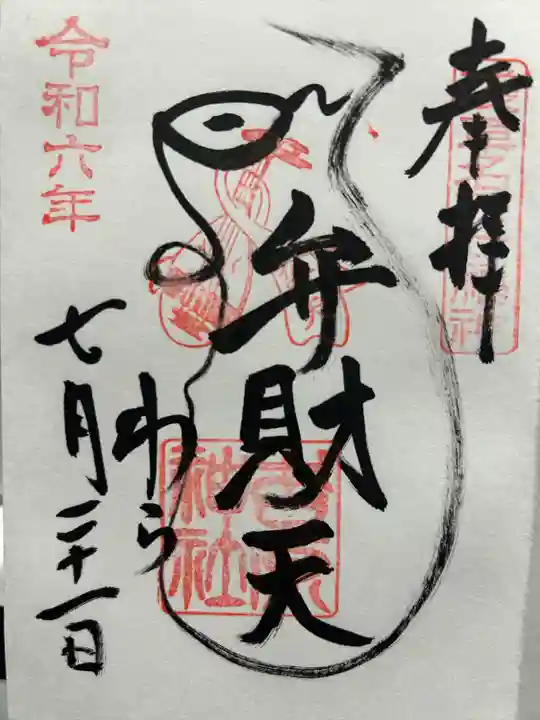 奉拝
弁財天
神社
わら
令和六年
七月二十一日